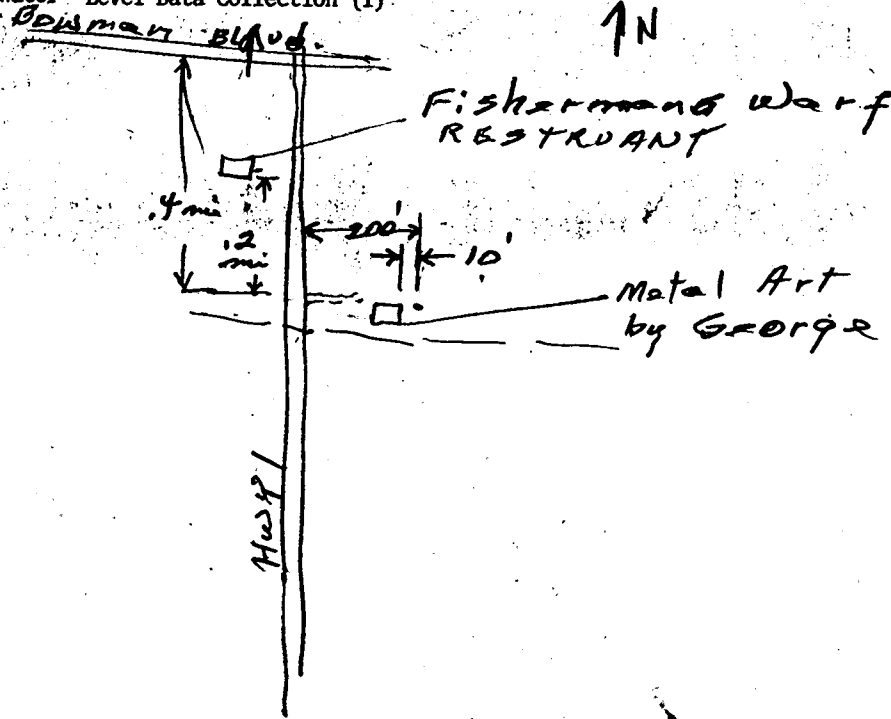 Level Data Collection (1)
Bowman BLVD.
N
Fishermans Warf
RESTRUANT
.4 mi
.2
mi
200'
10'
Metal Art
by George
Hwy 1